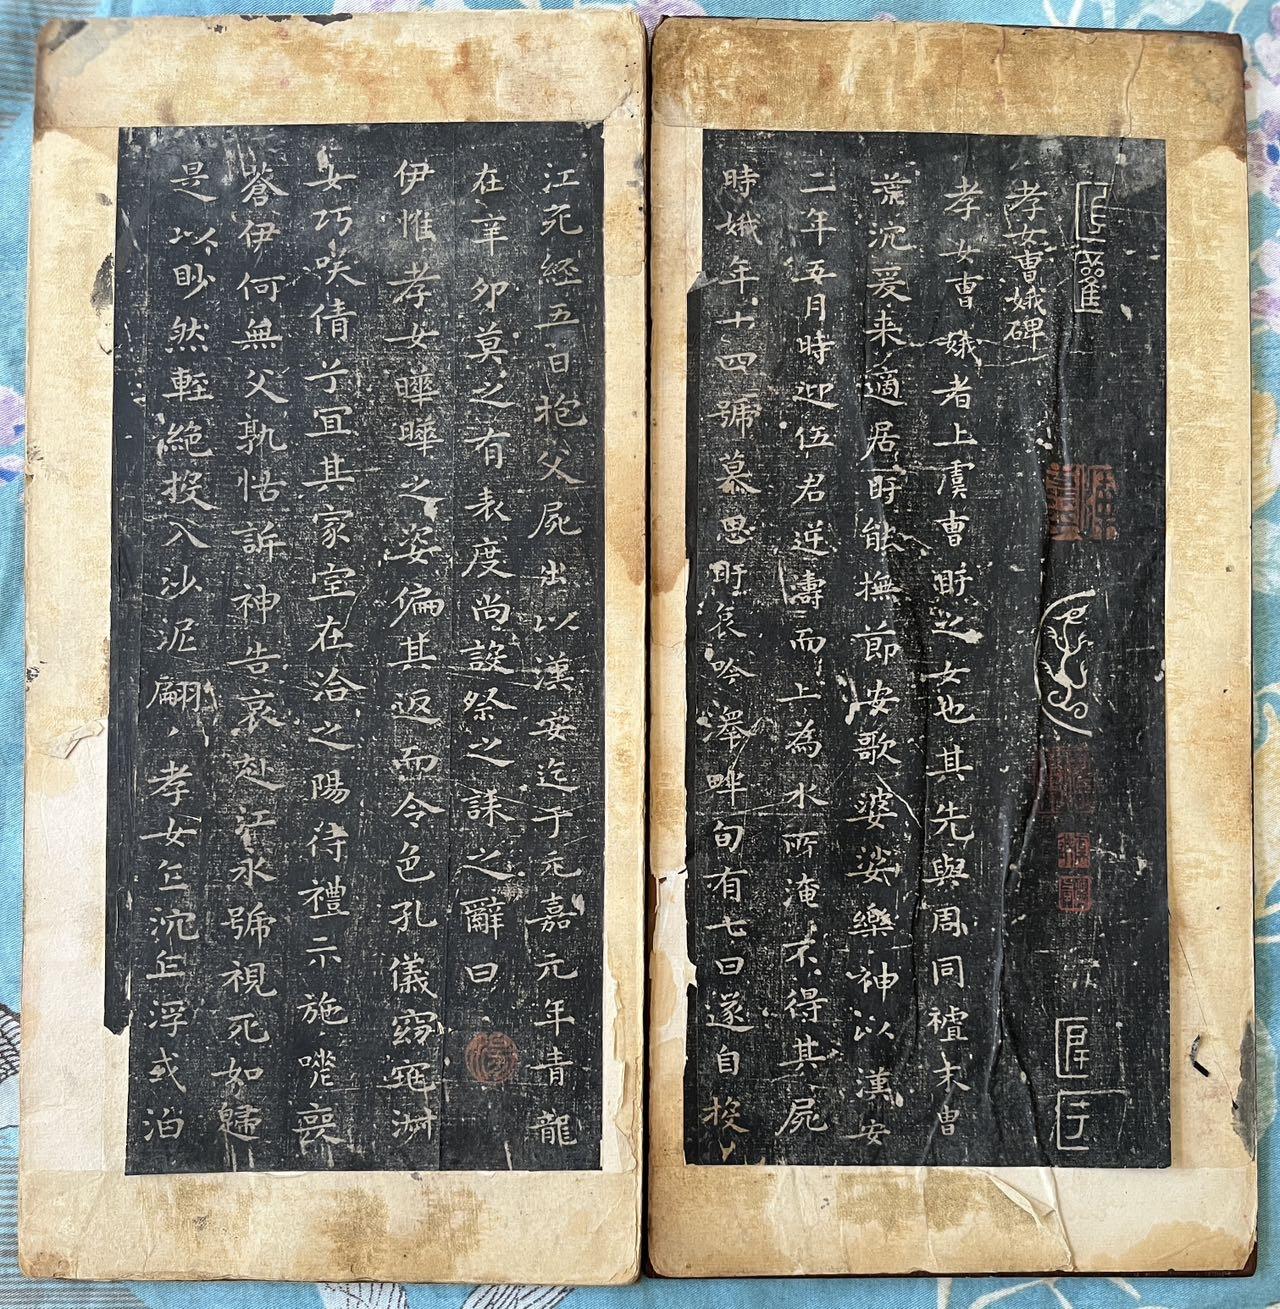 孝女曹娥碑
孝女曹娥者上虞曹盱之女也其先與周同禮末曹
荒沉爰来適居盱能撫節安歌婆娑樂神以漢安
二年五月時迎伍君逆濤而上為水所淹不得其屍
時娥年十四號慕思盱哀吟澤畔旬有七日遂自投
江死経五日抱父屍出以漢安迄于元嘉元年青龍
在辛卯莫之有表度尚設祭之誄之辭曰
伊惟孝女曄曄之姿偏其返而令色孔儀窈窕淑
女巧咲倩兮宜其家室在洽之陽待禮示施嗟喪
蒼伊何無父孰怙訴神告哀赴江永號視死如歸
是以眇然輕絶投入沙泥翩丶孝女乍沉乍浮或泊